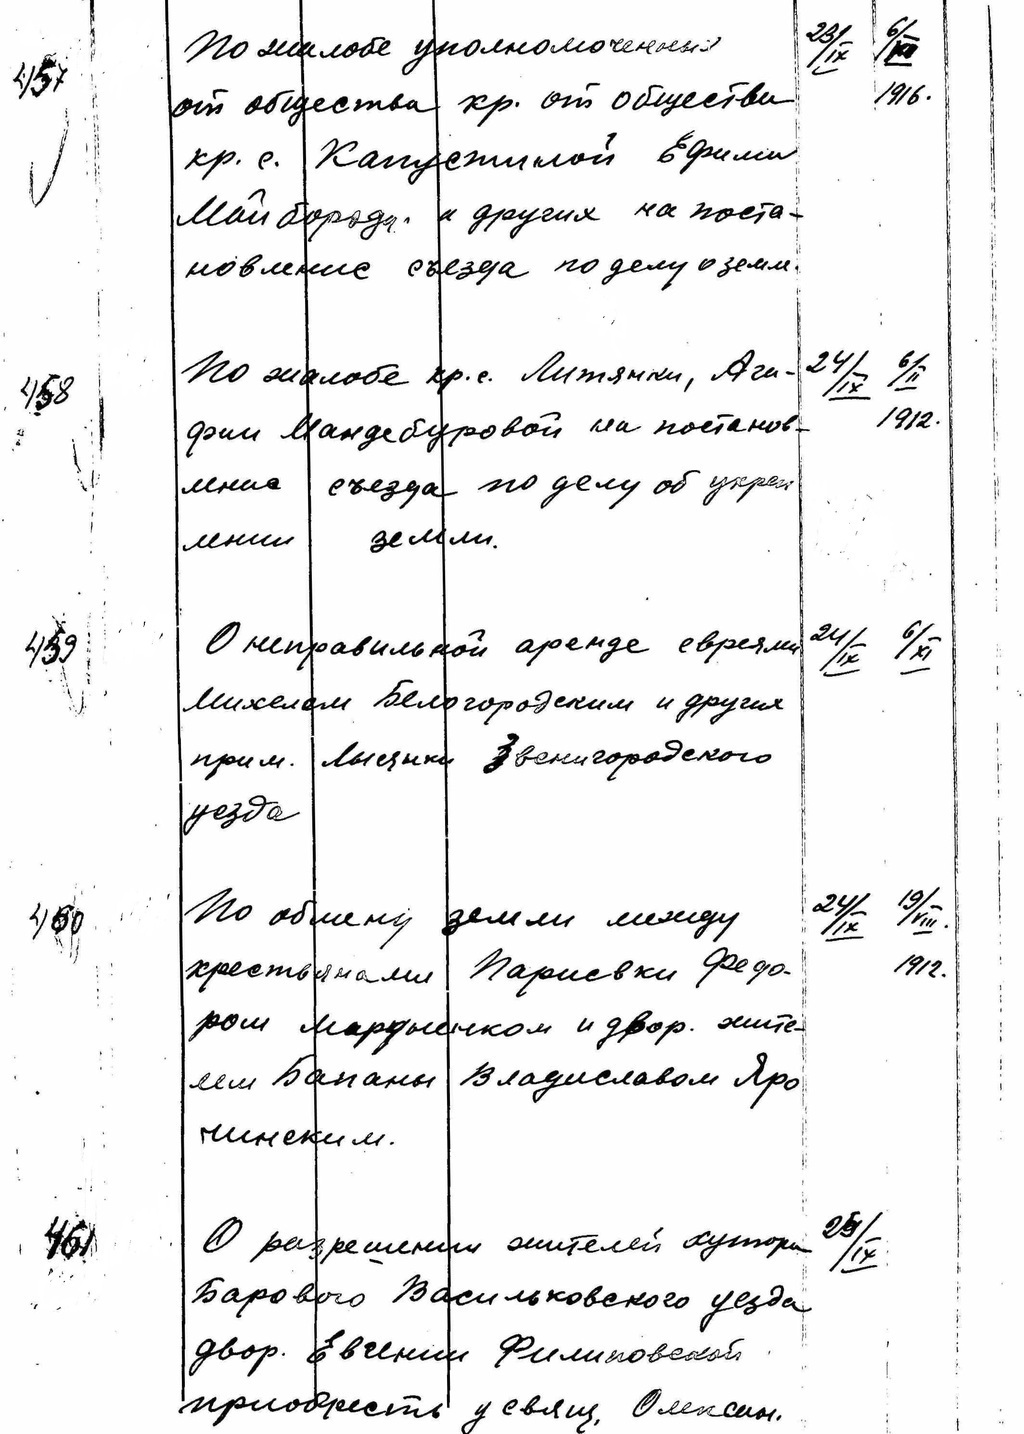 457 По жалобе уполномоченных 23/IX 6/XII
от общества кр. от общества 1916.
кр. с. Капустиной Ефима
Майбороды и других на поста-
новление съезда по делу о земл.
458 По жалобе кр. с. Литянки, Ага- 24/IX 6/II
фии Мандебуровой на постанов- 1912.
ление съезда по делу об укреп
лении земли.
459 О неправильной аренде евреями 24/IX 6/XI
Михелем Белогородским и других
прим. Лысянки Звенигородского
уезда
460 По обмену земли между 24/IX 19/VIII.
крестьянами Парисвки Федо- 1912.
ром и двор. жите-
лем Бапаны Владиславом Яро
чинским.
461 О разрешении жителей хутора 25/IX
Барового Васильковского уезда
двор. Евгении Филиповской
приобресть у свящ. Олексан.